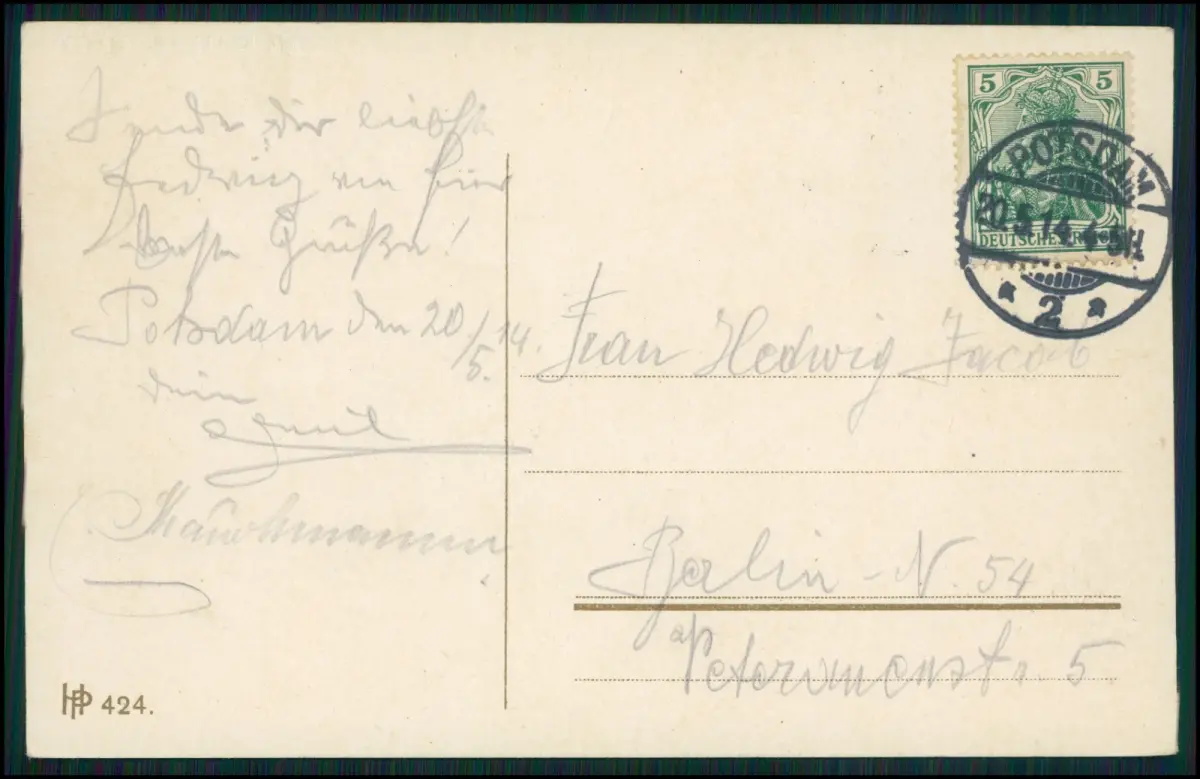 Sende dir liebste
Hedwig von hier
beste Grüße!
Potsdam den 20/5.14.
dein
5 5
DEUTSCHES REICH
POTSDAM
20.5.14. 4-5N.
* 2 *
Frau Hedwig Jacob
Berlin - N. 54
5
HP 424.